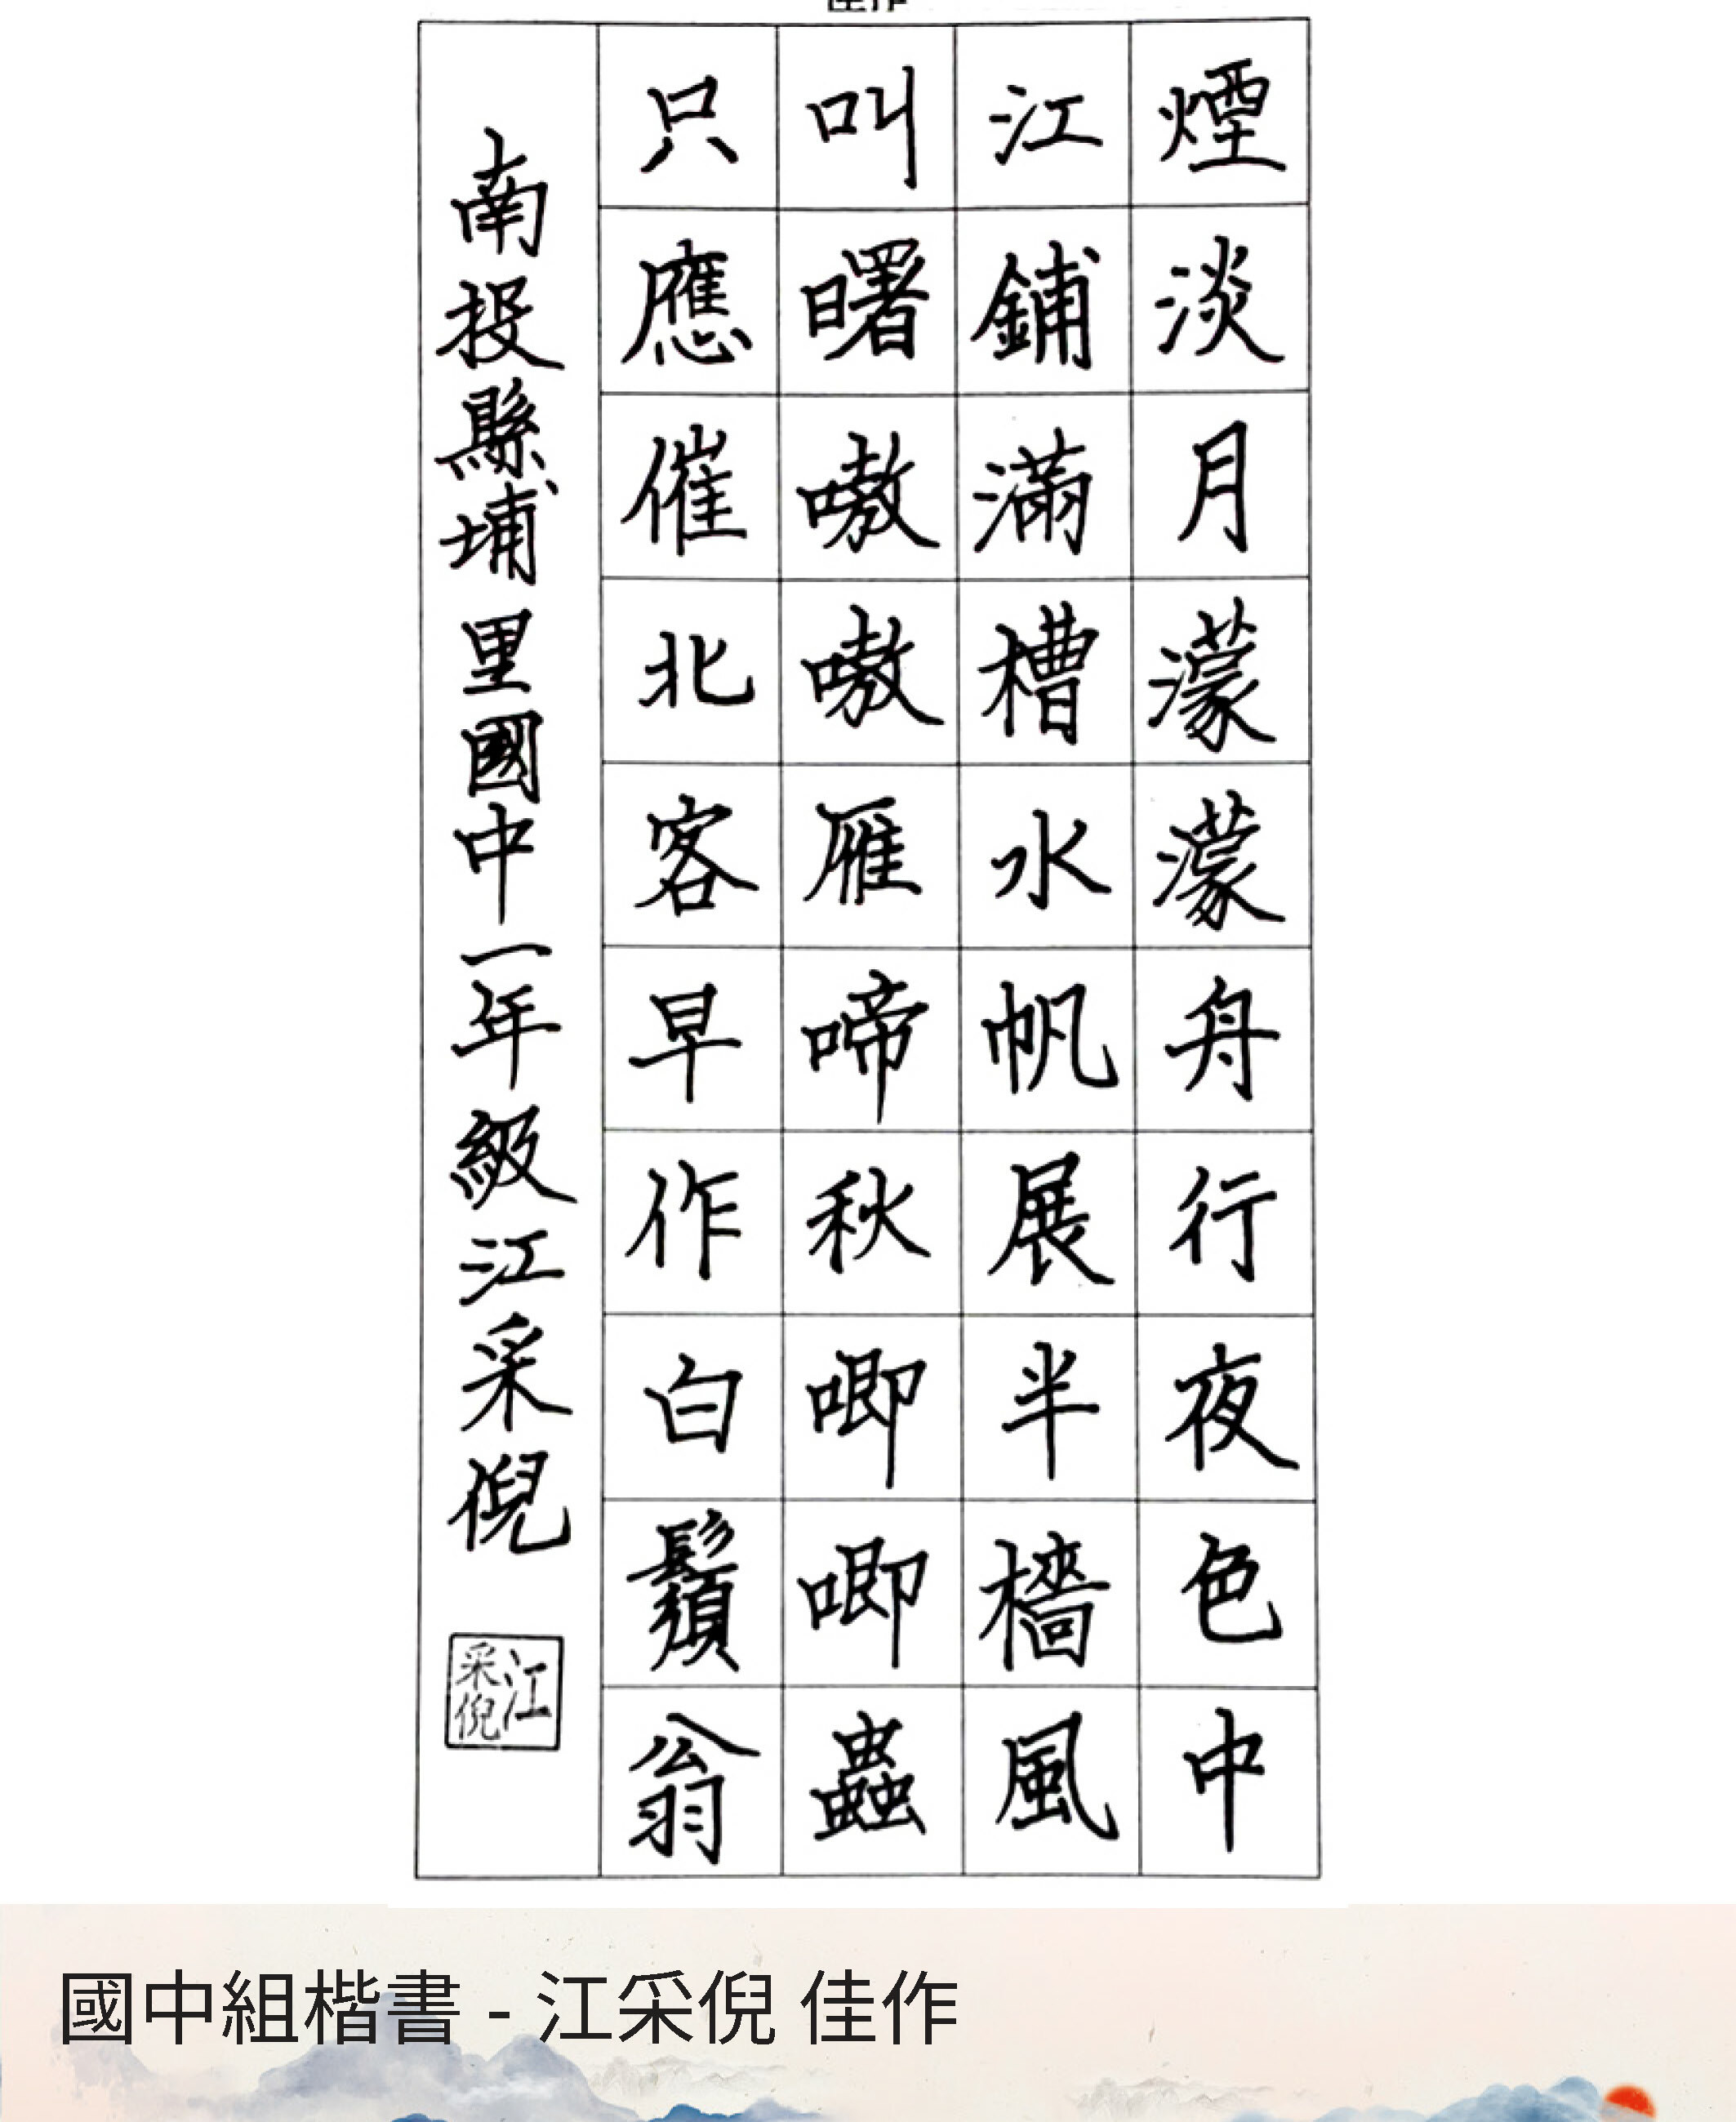 煙淡月濛濛舟行夜色中
江鋪滿槽水帆展半檣風
叫曙嗷嗷雁啼秋唧唧蟲
只應催北客早作白鬚翁
南投縣埔里國中一年級江采倪
江采倪
國中組楷書 - 江采倪 佳作